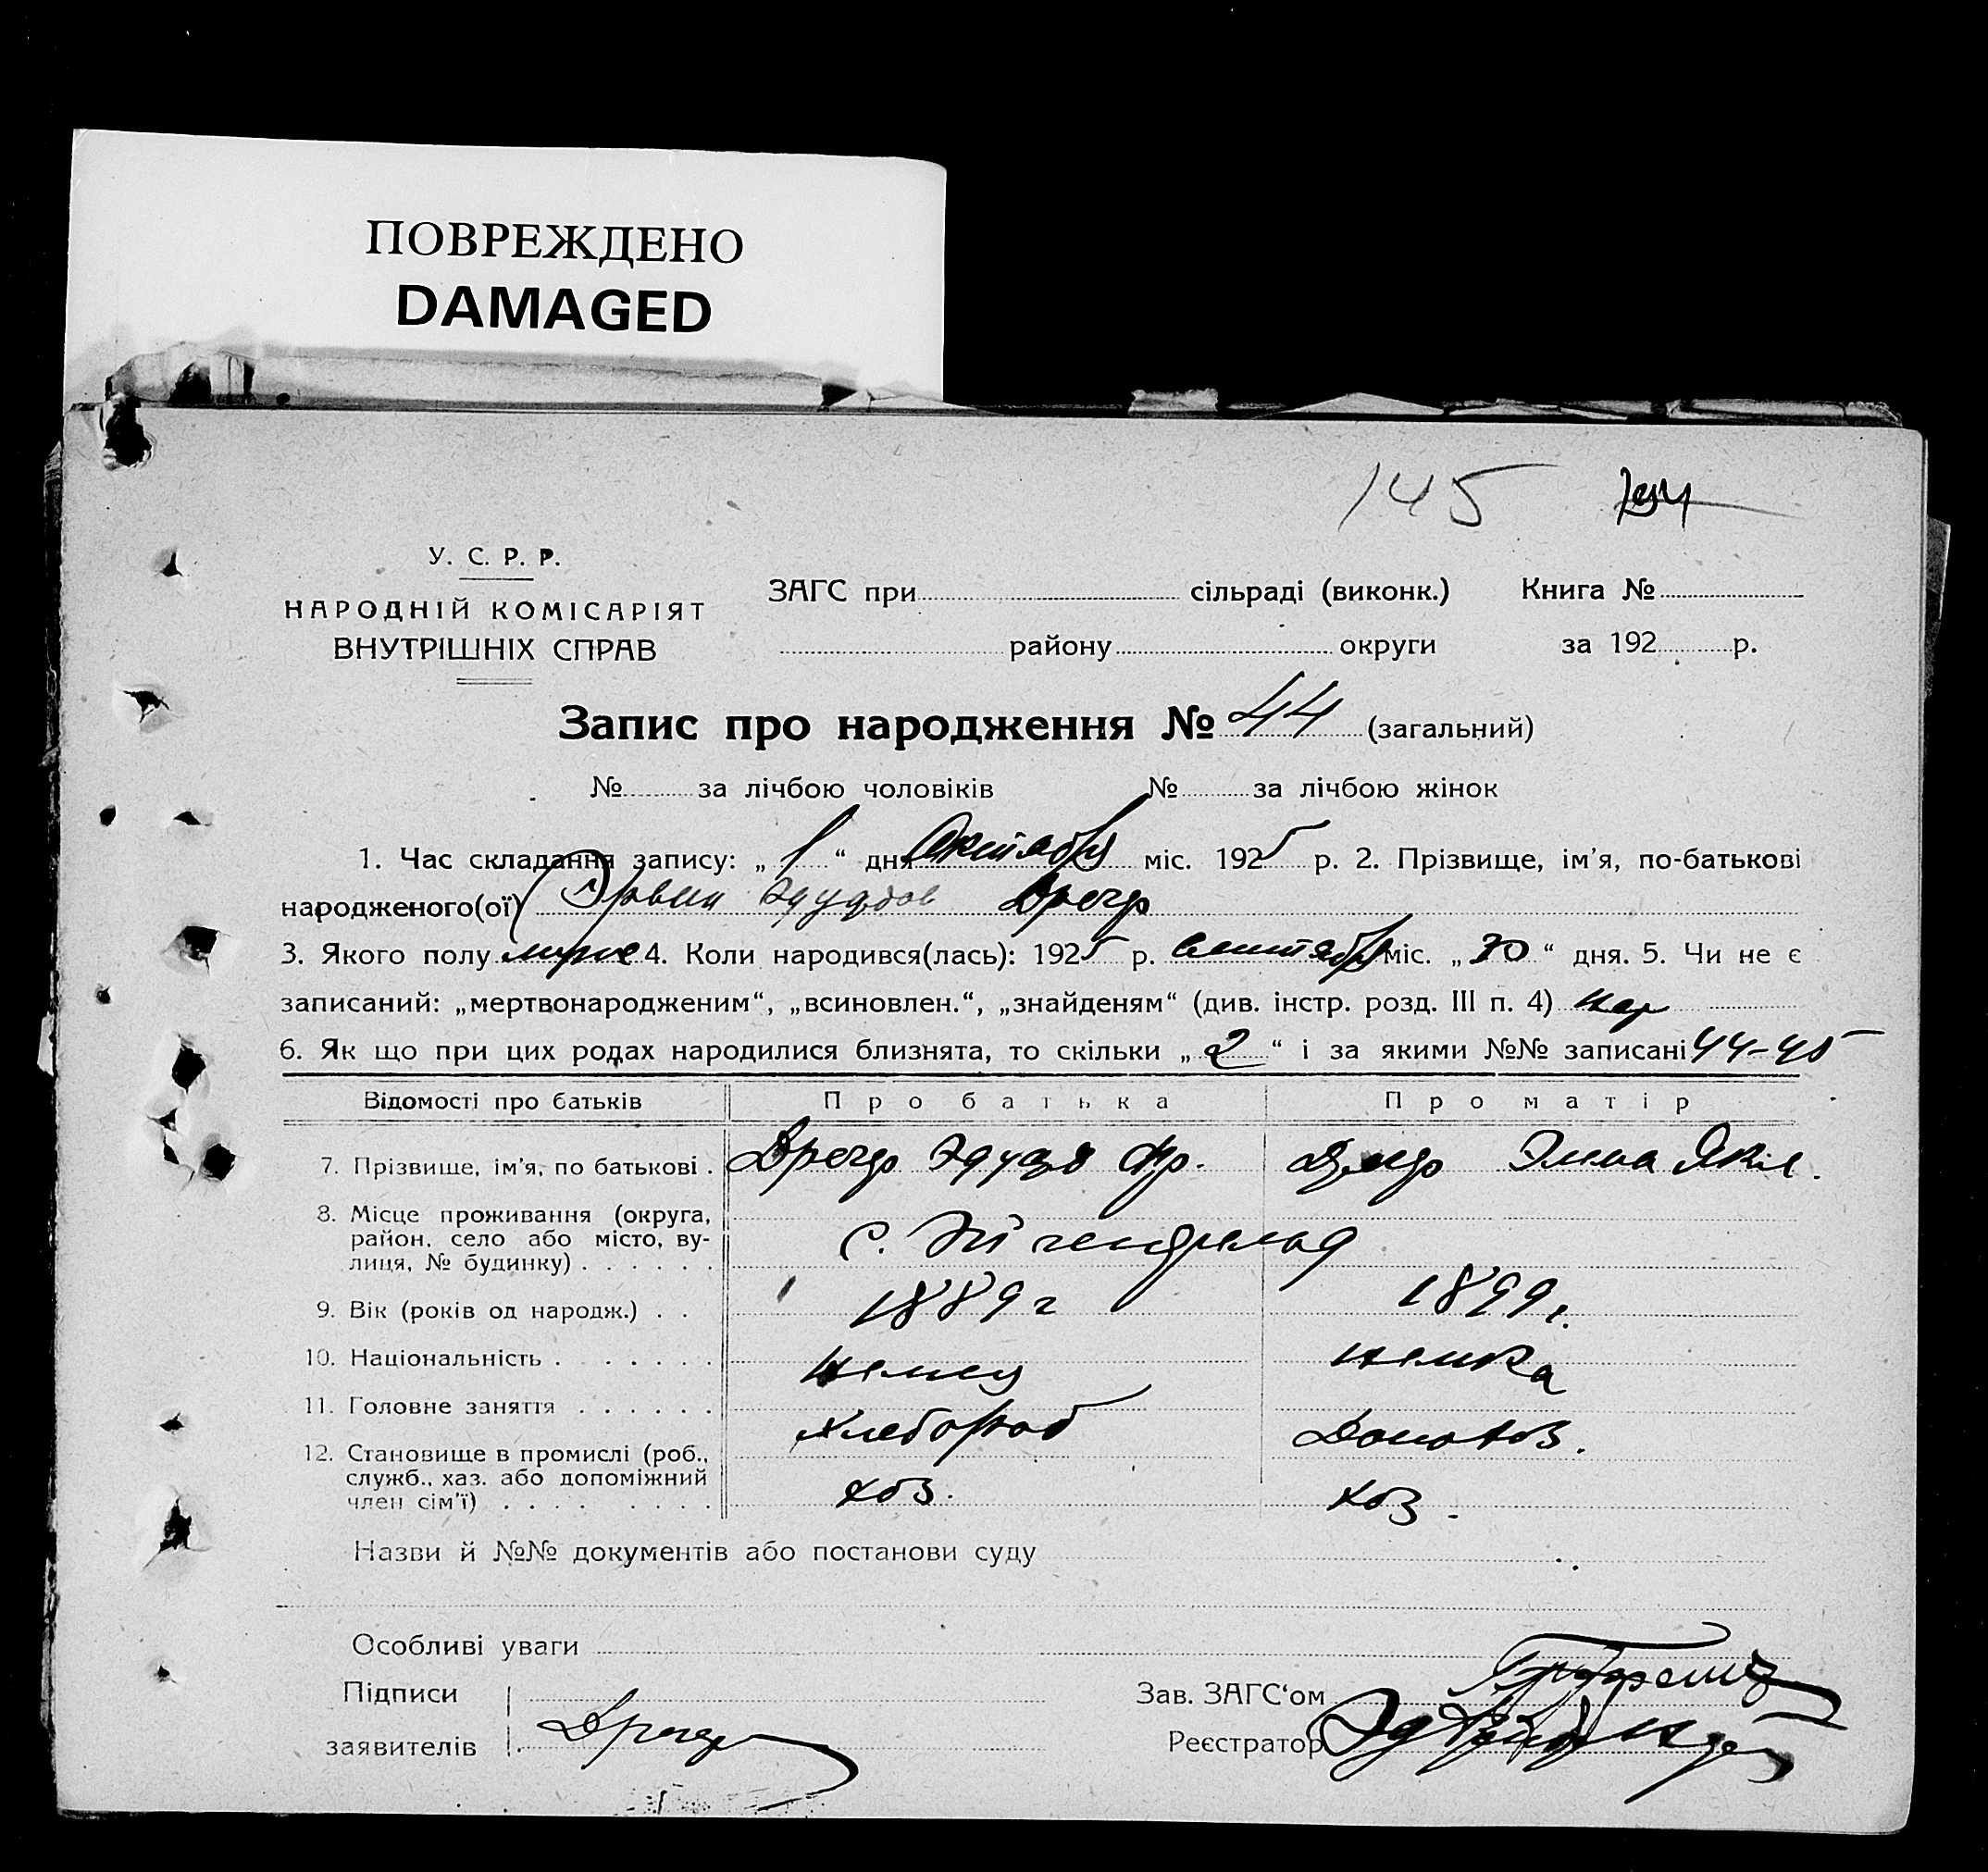 ПОВРЕЖДЕНО
DAMAGED
145
У. С. Р. Р.
НАРОДНІЙ КОМІСАРІЯТ
ВНУТРІШНІХ СПРАВ
ЗАГС при сільраді (виконк.) Книга №
району округи за 192 р.
Запис про народження № 44 (загальний)
№ за лічбою чоловіків № за лічбою жінок
1. Час складання запису: „ 1 “ дня Октября міс. 1925 р. 2. Прізвище, ім’я, по-батькові
народженого(ої)
3. Якого полу муж 4. Коли народився(лась): 1925 р. сентября міс. „ 30 “ дня. 5. Чи не є
записаний: „мертвонародженим“, „всиновлен.“, „знайденям“ (див. інстр. розд. III п. 4)
6. Як що при цих родах народилися близнята, то скільки „ 2 “ і за якими №№ записані 44-45
Відомості про батьків Про батька Про матір
7. Прізвище, ім’я, по батькові .
8. Місце проживання (округа,
район, село або місто, ву-
лиця, № будинку) . . . . . . с.
9. Вік (років од народж.) . . 1889 г 1899 г.
10. Національність . . . . . . немец немка
11. Головне заняття . . . . . . хлебороб Домохоз.
12. Становище в промислі (роб.,
служб., хаз. або допоміжний
член сім’ї) . . . . . . . . хоз. хоз.
Назви й №№ документів або постанови суду
Особливі уваги
Підписи
заявителів
Зав. ЗАГС‘ом
Реєстратор